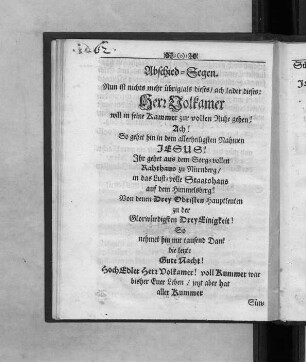 Abschied-Segen.
Nun ist nichts mehr übrig/als dieses/ ach leider dieses:
Herr Volkamer
will in seine Kammer zur vollen Ruhe gehen!
Ach!
So gehet hin in dem allerheiligsten Nahmen
JESUS!
Ihr gehet aus dem Sorge-vollen
Rahthaus zu Nürnberg/
in das Lust-volle Staatshaus
auf dem Himmelsberg!
Von denen Drey Obristen Hauptleuten
zu der
Glorwürdigsten Drey Einigkeit!
So
nehmet hin mit tausend Dank
die letzte
Gute Nacht!
Hoch Edler Herr Volkamer! voll Kummer war
bisher Euer Leben/ jetzt aber hat
aller Kummer